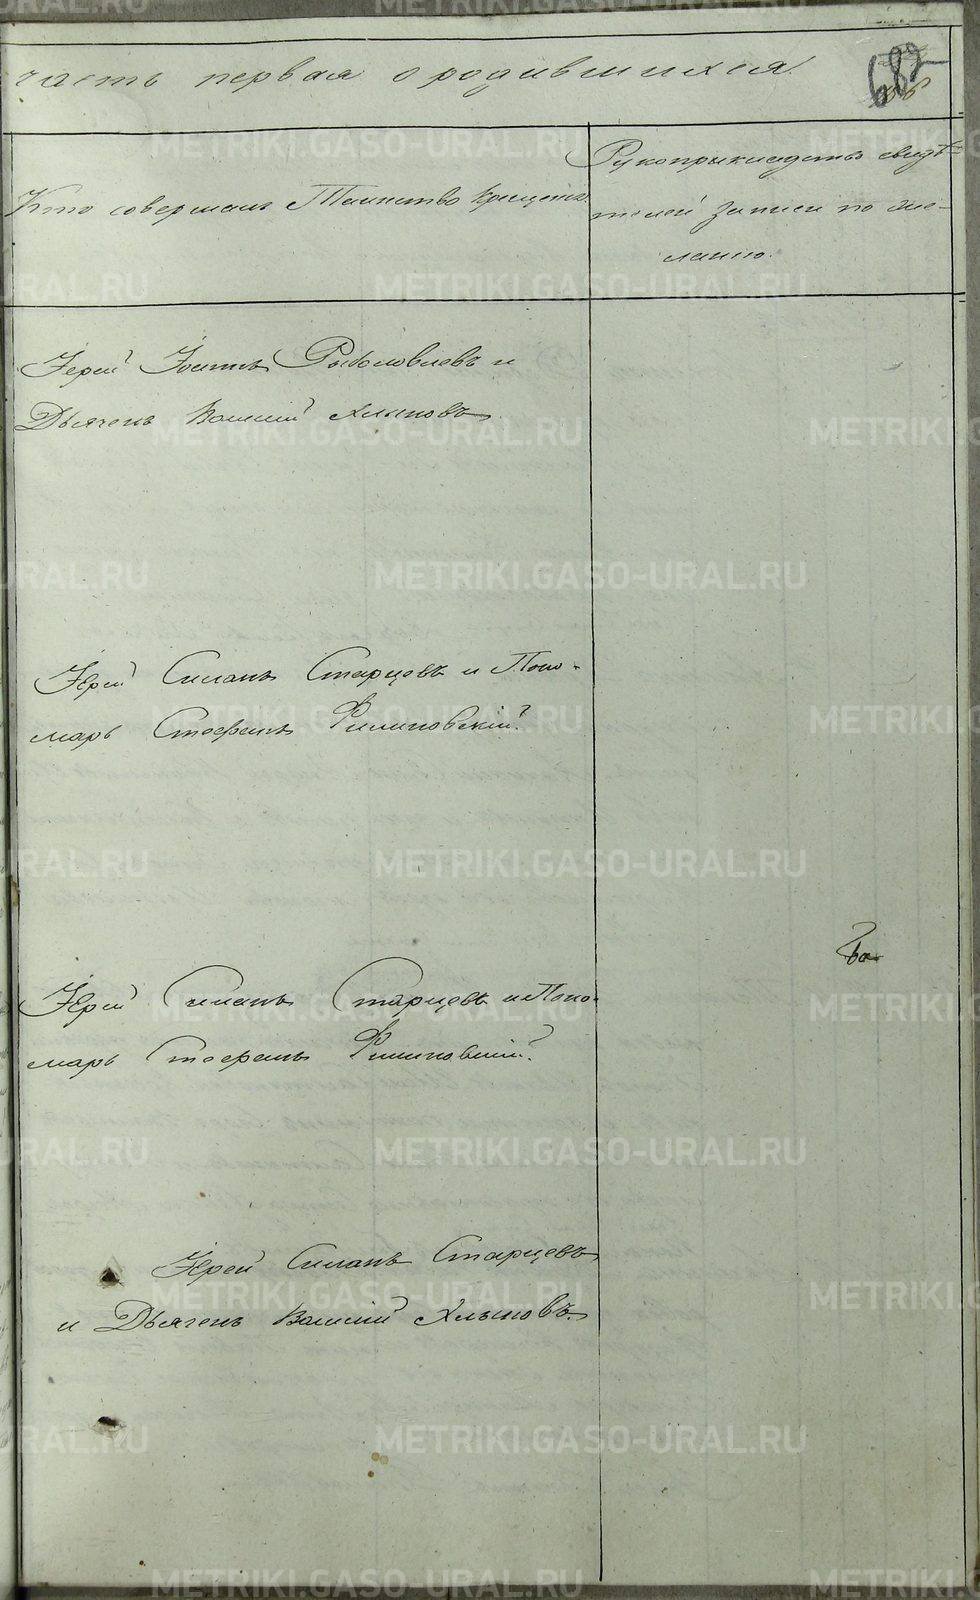 часть первая о родившихся.
682
Кто совершалъ Таинство крещенія.
Рукоприкладство свидѣ-
телей записи по же-
ланію.
Іерей Іоаннъ Рыболовлевъ и
Дьячекъ Василій Хлыновъ.
Іерей Симеонъ Старцевъ и Поно-
марь Стефанъ Филиповскій.
Іерей Симеонъ Старцевъ и Поно-
марь Стефанъ Филиповскій.
Іерей Симеонъ Старцевъ
и Дьячекъ Василій Хлыновъ.
METRIKI.GASO-URAL.RU